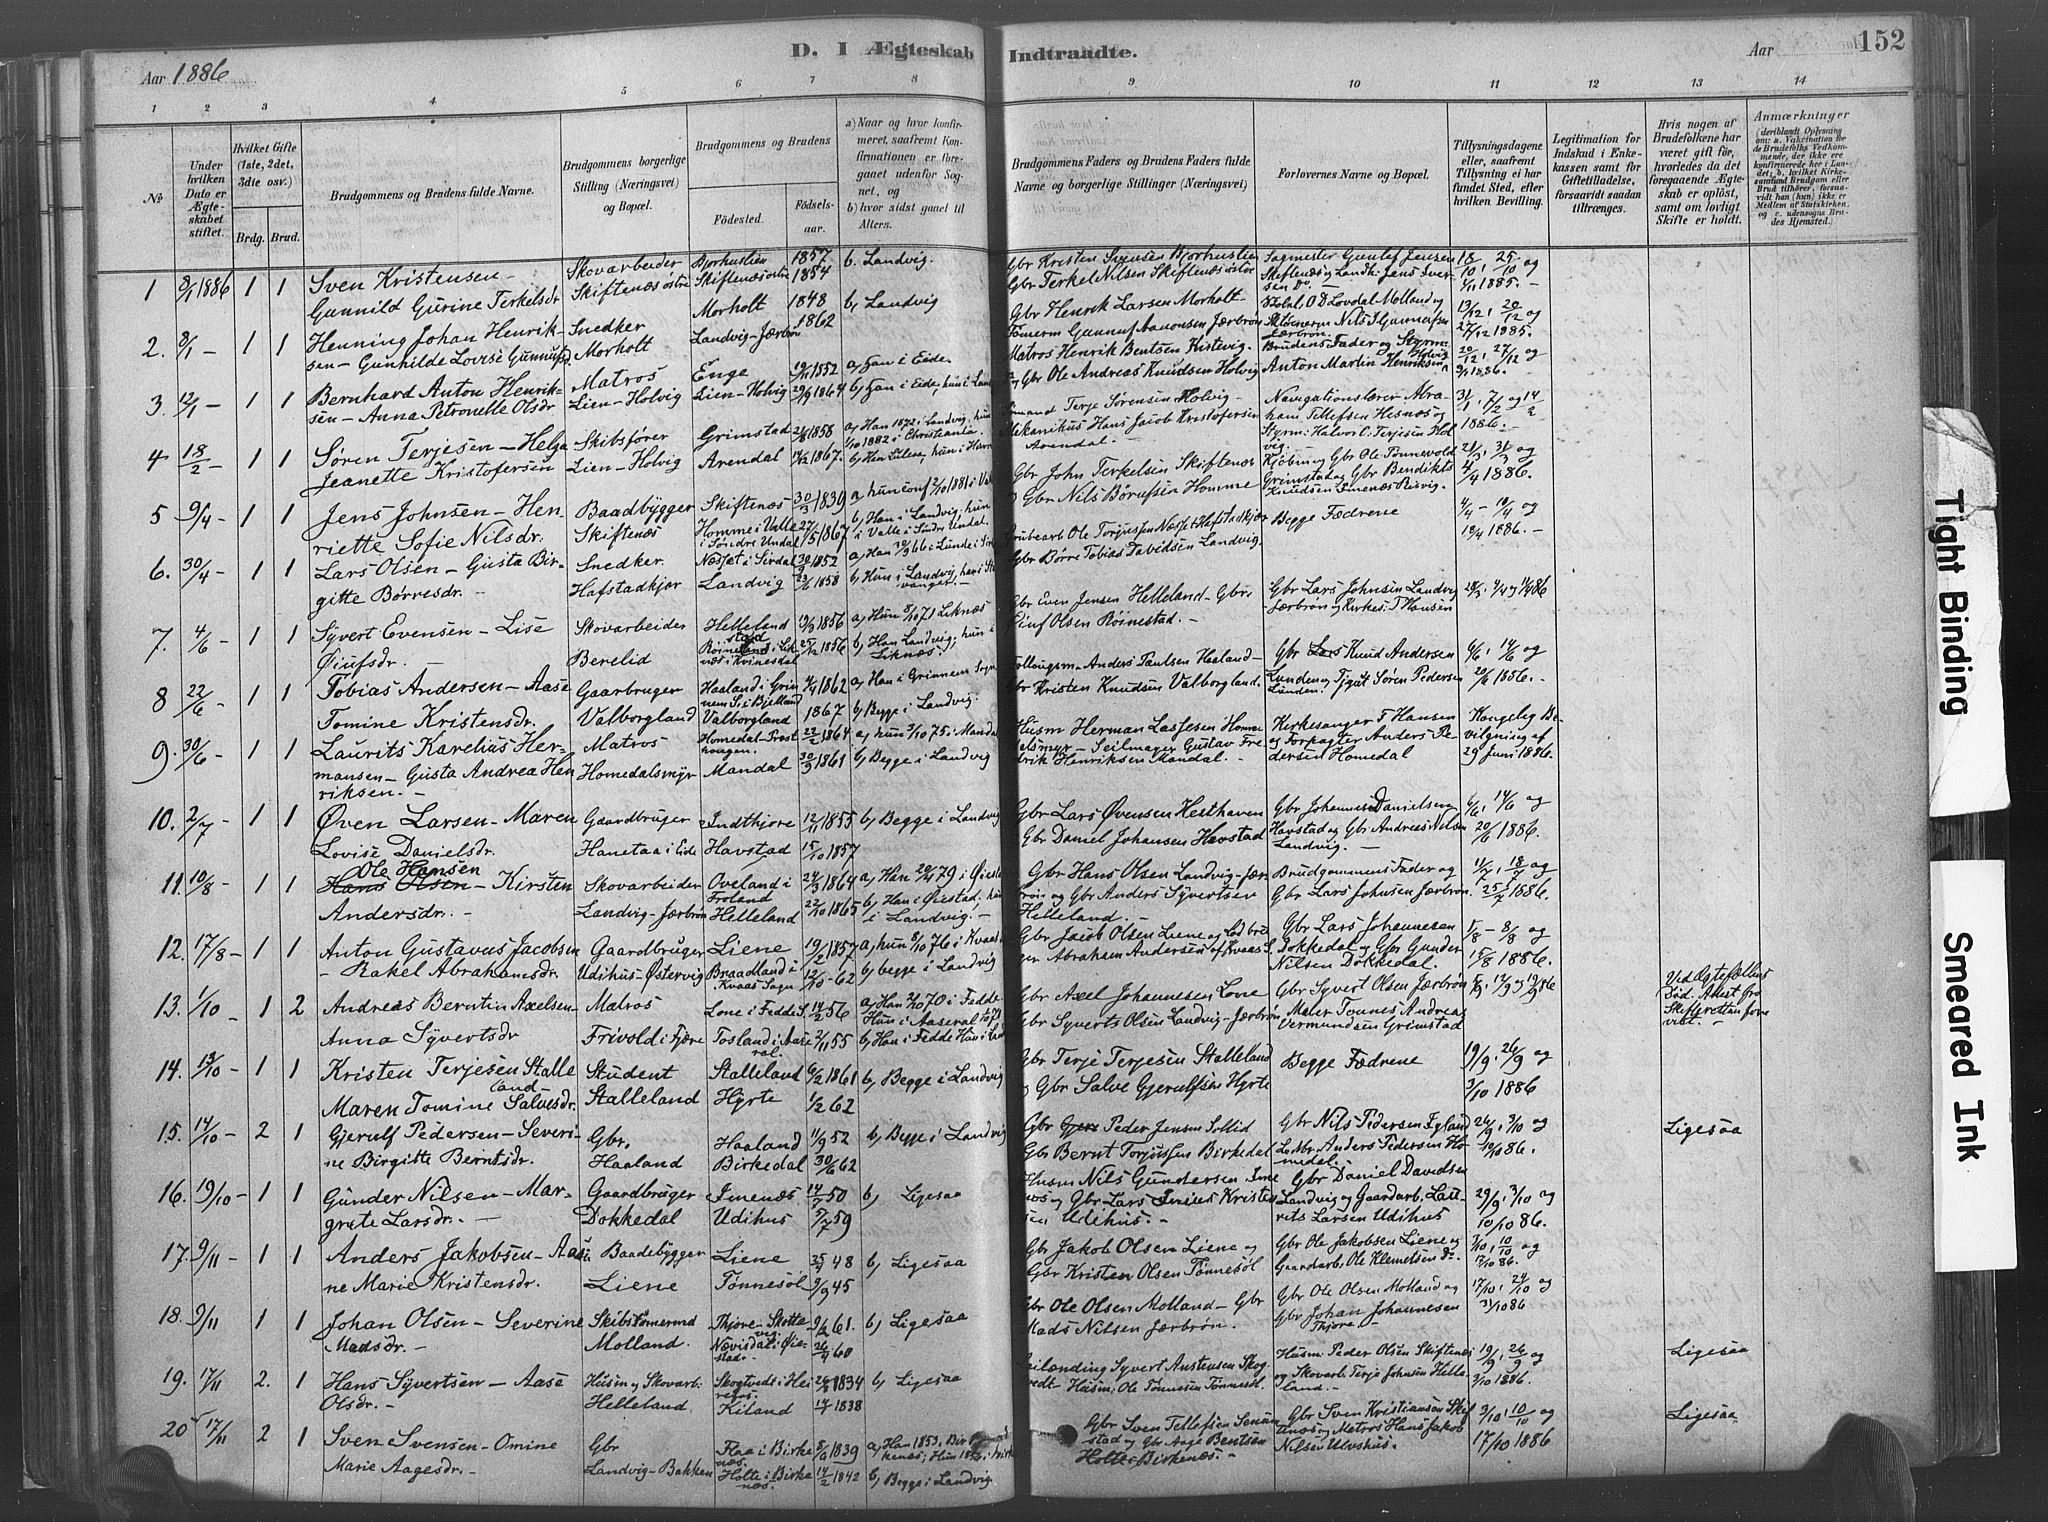 D. I Ægteskab Indtraadte.
Aar 1886
Aar
152
1 2 3 4 5 6 7 8 9 10 11 12 13 14
No
Under hvilken Dato er Ægteskabet stiftet.
Hvilket Gifte (1ste, 2det, 3die osv.)
Brdg. Brud.
Brudgommens og Brudens fulde Navne.
Brudgommens borgerlige Stilling (Næringsvei) og Bopæl.
Brudgommens og Brudens
Fødested.
Fødsels-aar.
a) Naar og hvor konfirmeret, saafremt Konfirmationen er foregaaet udenfor Sognet, og
b) hvor sidst gaaet til Alters.
Brudgommens Faders og Brudens Faders fulde Navne og borgerlige Stillinger (Næringsvei)
Forlovernes Navne og Bopæl.
Tillysningsdagene eller, saafremt Tillysning ei har fundet Sted, efter hvilken Bevilling.
Legitimation for Indskud i Enkekassen samt for Giftetilladelse, forsaavidt saadan tiltrænges.
Hvis nogen af Brudefolkene har været gift før, hvorledes da det foregaaende Ægteskab er opløst, samt om lovligt Skifte er holdt.
Anmærkninger
1 8/1 1886 1 1 Sven Kristensen – Gunnild Gurine Terkelsdr Skovarbeider Skiftenæs østre Bjorhuslien Skiftenæs østre 1857 1854 b. Landvig.
Gbr Kristen Svensen Bjorhuslien Gbr Terkel Nilsen Skiftenæs østre Sagmester Gunlef Jensen Skiftenæs og Landh. Jens Iversen Do. – 18/10, 25/10 og 1/11 1885. –
2. 8/1 – 1 1 Henning Johan Henriksen – Gunhilde Lovise Gunnufsd. Snedker Morholt Morholt Landvig-Jærbrøn 1848 1862 b, Landvig
Gbr Henrik Larsen Morholt – Tømerm Gunnuf Aanonsen Jærbrøn 13/12, 20/12 og 27/12 1885.
3. 12/1 – 1 1 Bernhard Anton Henriksen – Anna Petronelle Olsdr Matros Lien – Holvig Enge Lien – Holvig 1852 29/9 1864 a, Han i Eide, b, Han i Eide, hun i Landv
Matros Henrik Bentsen Kistevig. og Gbr Ole Andreas Knudsen Holvig Brudens Fader og Styrm. Anton Martin Henriksen Holvig 20/12, 27/12 og 3/1 1886.
4 18/2 – 1 1 Søren Terjesen – Helga Jeanette Kristofersen Skibsfører Lien – Holvig Grimstad Arendal 1858 1867 a, Han 1872 i Landvig, hun 1/10 1882 i Christiania.
Terje Sørensen Holvig – Mekanikus Hans Jacob Kristofersen Arendal – Navigationslærer Abraham Tellefsen Hesnæs og Styrm. Halvor C. Terjesen Holvig. 31/1, 7/2 og 14/2 1886. –
5 9/4 – 1 1 Jens Johnsen – Henriette Sofie Nilsdr. Baadbygger Skiftenæs Skiftenæs Homme i Valle i Søndre Undal 30/3 1839 27/5 1867 a hun conf 2/10 1881 i Val b, Han i Landvig, hun i Valle i Søndre Undal.
Gbr John Terkelsen Skiftenæs og Gbr Nils Børufsen Homme Kjøbm og Gbr Ole Tønnevold Grimstad og Gbr Bendikts Knudsen Imenæs Risvig. 21/3, 31/3 og 4/4 1886.
6. 30/4 – 1 1 Lars Olsen – Gusta Birgitte Børresdr. Snedker Hafstadkjær Næset i Sirdal Landvig 30/9 1852 23/6 1858 a, Han 30/9 66 i Lunde i Sir b, Hun i Landvig, han i Stavanger. –
Ole Torjussen Næset Hafstadkjær Gbr Børre Tobias Davidsen Landvig. Begge Fædrene 4/4 – 10/4 og 18/4 1886. –
7. 4/6 – 1 1 Syvert Evensen – Lise Øiufsdr. Skovarbeider Berelid Helleland Røinestad i Liknæs i Kvinesdal 1856 1856 a, Hun 8/10 71 Liknæs b, Han Landvig, hun i Liknæs.
Gbr Even Jensen Helleland – Gbr Øiuf Olsen Røinestad. Gbr Lars Johnsen Landvig Jærbrøn og Kirkes. T Hansen
8 22/6 – 1 1 Tobias Andersen – Aase Tomine Kristensdr. Gaarbruger Valborgland Haaland i Grinnem S. i Bjelland Valborgland 1862 1867 a, Han i Grinnem Sogn b, Begge i Landvig.
Anders Paulsen Haaland – Gbr Kristen Knudsen Valborgland. Gbr Knud Andersen Lunden og Tjgst Søren Pedersen Lunden. 6/6, 14/6 og 20/6 1886. –
9. 30/6 – 1 1 Laurits Karelius Hermansen – Gusta Andrea Henriksen. – Matros Homedalsmyr Homedal-Prosthougen. Mandal 22/2 1864 30/9 1861 a, hun 3/10 75. i Mandal b, Begge i Landvig
Husm Herman Lassesen Homedalsmyr – Seilmager Gustav Fredrik Henriksen Mandal. – Kirkesanger T Hansen og Forpagter Anders Pedersen Homedal Kongelig Bevilgning af 29 Juni 1886.
10. 2/7 – 1 1 Øven Larsen – Maren Lovise Danielsdr. Gaardbruger Hanetaa i Eide Indthjore Havstad 12/11 1855 15/10 1857 b, Begge i Landvig
Gbr Lars Øvensen Hesthaven Gbr Daniel Johansen Havstad Gbr Johannes Danielsen Havstad og Gbr Andreas Nilsen Landvig. – 6/6, 14/6 og 20/6 1886.
11. 10/8 – 1 1 Ole Hansen Hans Olsen – Kirsten Andersdr. – Skovarbeider Landvig – Jærbrøn Oveland i Froland Helleland 24/3 1864 22/10 1865 a, Han 20/4 79 i Øiestad b, Han i Øiestad, hun i Landvig. –
Gbr Hans Olsen Landvig – Jærbrøn og Gbr Anders Syvertsen Helleland. – Brudgommens Fader og Gbr Lars Johnsen Jærbrøn. 11/7, 18/7 og 25/7 1886.
12. 17/8 – 1 1 Anton Gustavus Jacobsen – Rakel Abrahamsdr. Gaardbruger Udihus – Østervig Liene Braadland i Kvaas Sogn 19/2 1857 12/10 – 62 a, hun 8/10 76 i Kvaas b, begge i Landvig
Gbr Jacob Olsen Liene og Gbr Abraham Andersen af Kvaas S. Gbr Lars Johannesen Dokkedal og Gbr Gunder Nilsen Dokkedal. 1/8 – 8/8 og 15/8 1886.
13. 1/10 – 1 2 Andreas Berntin Axelsen – Anna Syvertsdr Matros Frivold i Fjære Lone i Fedde S. Fosland i Aaseral. 14/2 56 2/11 55 a, Han 2/10 70 i Fedde Hun i Aaseral b, Han i Fedde Hun i Land
Gbr Axel Johannesen Lone Gbr Syverts Olsen Landvig – Jærbrøn Gbr Syvert Olsen Jærbrøn Maler Tønnes Andreas Vermundsen Grimstad 5/9, 12/9 og 19/9 86 Ved Ægtefællens Død. Attest fra Skifteretten forevist.
14. 13/10 – 1 1 Kristen Terjesen Stalleland – Maren Tomine Salvesdr. Student Stalleland Stalleland Hyrte 6/2 1861 1/2 62 b, Begge i Landvig
Gbr Terje Terjesen Stalleland og Gbr Salve Gjerulfsen Hyrte Begge Fædrene 19/9, 26/9 og 3/10 1886
15. 14/10 – 2 1 Gjerulf Pedersen – Severine Birgitte Berntsdr. Gbr, Haaland Haaland Birkedal 11/9 52 30/6 62 b, Begge i Landvig
Gbr Peder Jensen Sollid Gbr Bernt Torjussen Birkedal Gbr Nils Pedersen Egeland Anders Pedersen Homedal. 26/9, 3/10 og 10/10 86. Ligesaa
16. 19/10 – 1 1 Gunder Nilsen – Margrete Larsdr. – Gaardbruger Dokkedal Imenæs Udihus 14/7 50 3/7 59 b, Ligesaa
Husm Nils Gundersen Imenæs og Gbr Lars Kristensen Udihus. – Gbr Daniel Davidsen Landvig og Gaardarb. Laurits Larsen Udihus 29/9, 3/10 og 10/10 86.
17. 9/11 – 1 1 Anders Jakobsen – Aasine Marie Kristensdr. Baadebygger Liene Liene Tønnesøl 25/4 48 9/9 45 b, Ligesaa
Gbr Jakob Olsen Liene og Gbr Kristen Olsen Tønnesøl Gbr Ole Jakobsen Liene og Gaardarb. Ole Klemetsen Do 3/10, 10/10 og 17/10 86.
18. 9/11 1 1 Johan Olsen – Severine Madsdr. – Skibstømermd Molland. Thjore – Skottevig. Nævisdal i Øiestad. 9/2 61. 26/4 60 b, Ligesaa
Gbr Ole Olsen Molland – Gbr Mads Nilsen Jærbrøn. Gbr Ole Olsen Molland og Gbr Johan Johannesen Thjore. – 17/10, 24/10 og 31/10 86
19. 17/11 2. 1 Hans Syvertsen – Aase Olsdr. – Husm og Skovarb. Helleland Skogtvedt i Heirefos. Kiland 1834 1838 b, Ligesaa
Syvert Anstensen Skogtvedt – Husm. Ole Tønnesen Tønnesøl. Husm. Peder Olsen Skiftenæs og Skovarb Terje Johnsen Helleland. – 19/9, 26/9 og 3/10 1886. Ligesaa
20 17/11 2 1 Sven Svensen – Omine Marie Aagesdr. – Gbr Landvig – Bakken Flaa i Birkenæs. Holte i Birkenæs. 8/6 1839 14/2 1842 a, Han 1853. Birkenæs; b, Begge i Landvig.
Gbr Sven Tellefsen Senumstad og Gbr Aage Bentsen Holte – Birkenæs. – Gbr Sven Kristiansen Skiftenæs og Matros Hans Jakob Nilsen Udvshus. – 3/10, 10/10 og 17/10 1886 Ligesaa
Tight Binding
Smeared Ink